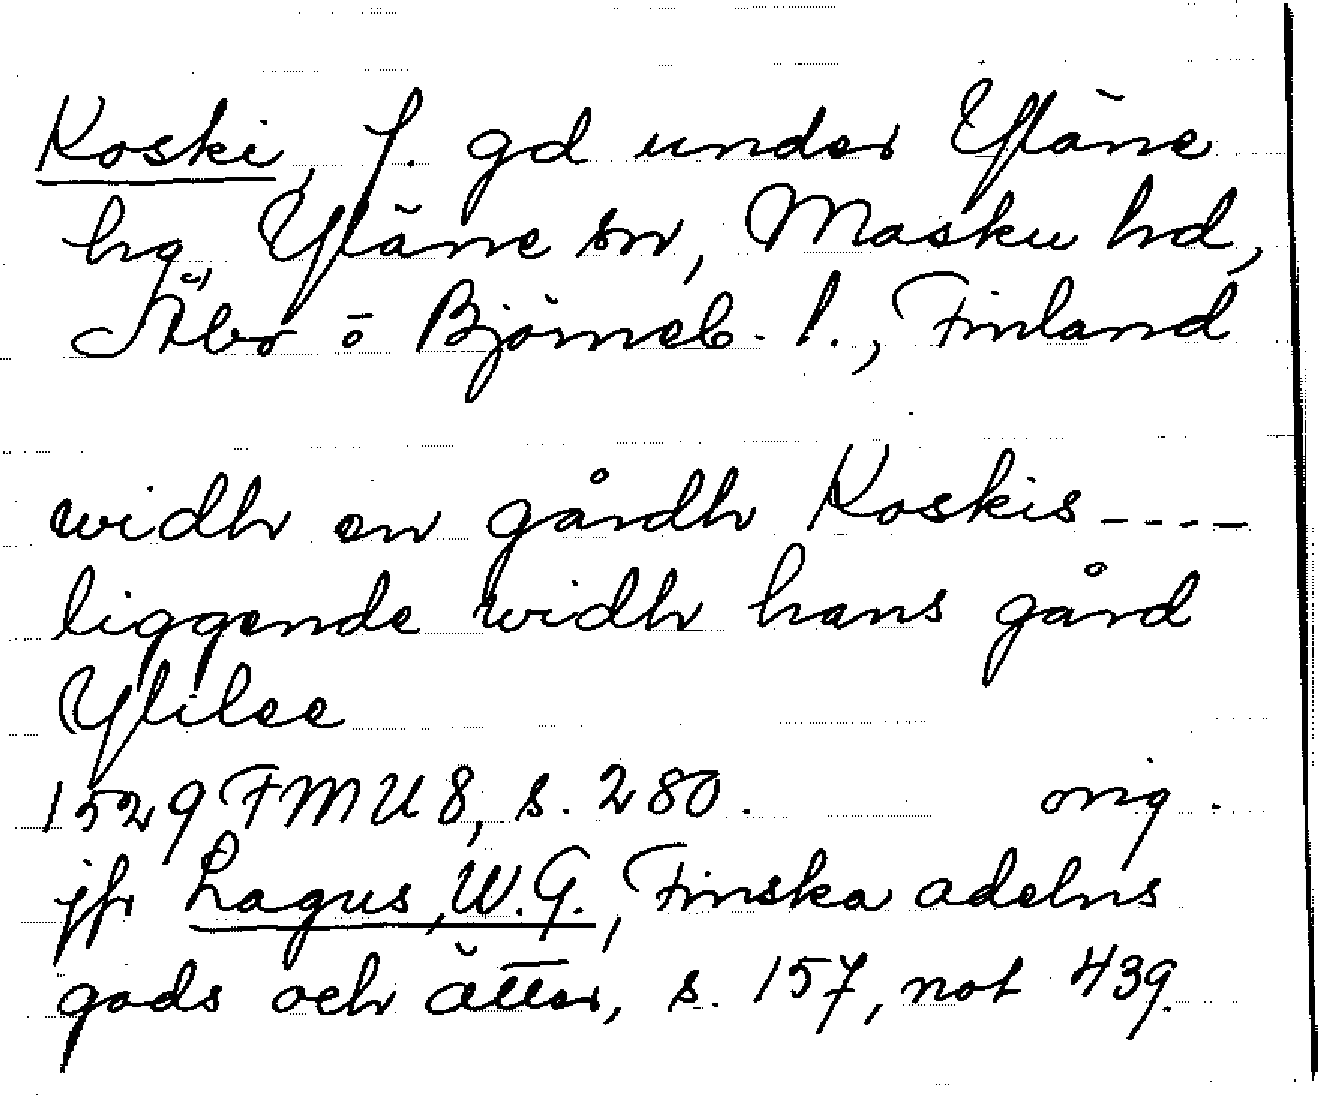 Koski, f. gd under Yläne
hg, Yläne sn, Masku hd,
Åbo o Björneb. l., Finland
widh en gårdh Koskis ----
liggende widh hans gård
Ylilee
1529 FMU 8, s. 280. orig.
jfr Lagus, W.G., Finska adelns
gods och ätter, s. 157, not 439.